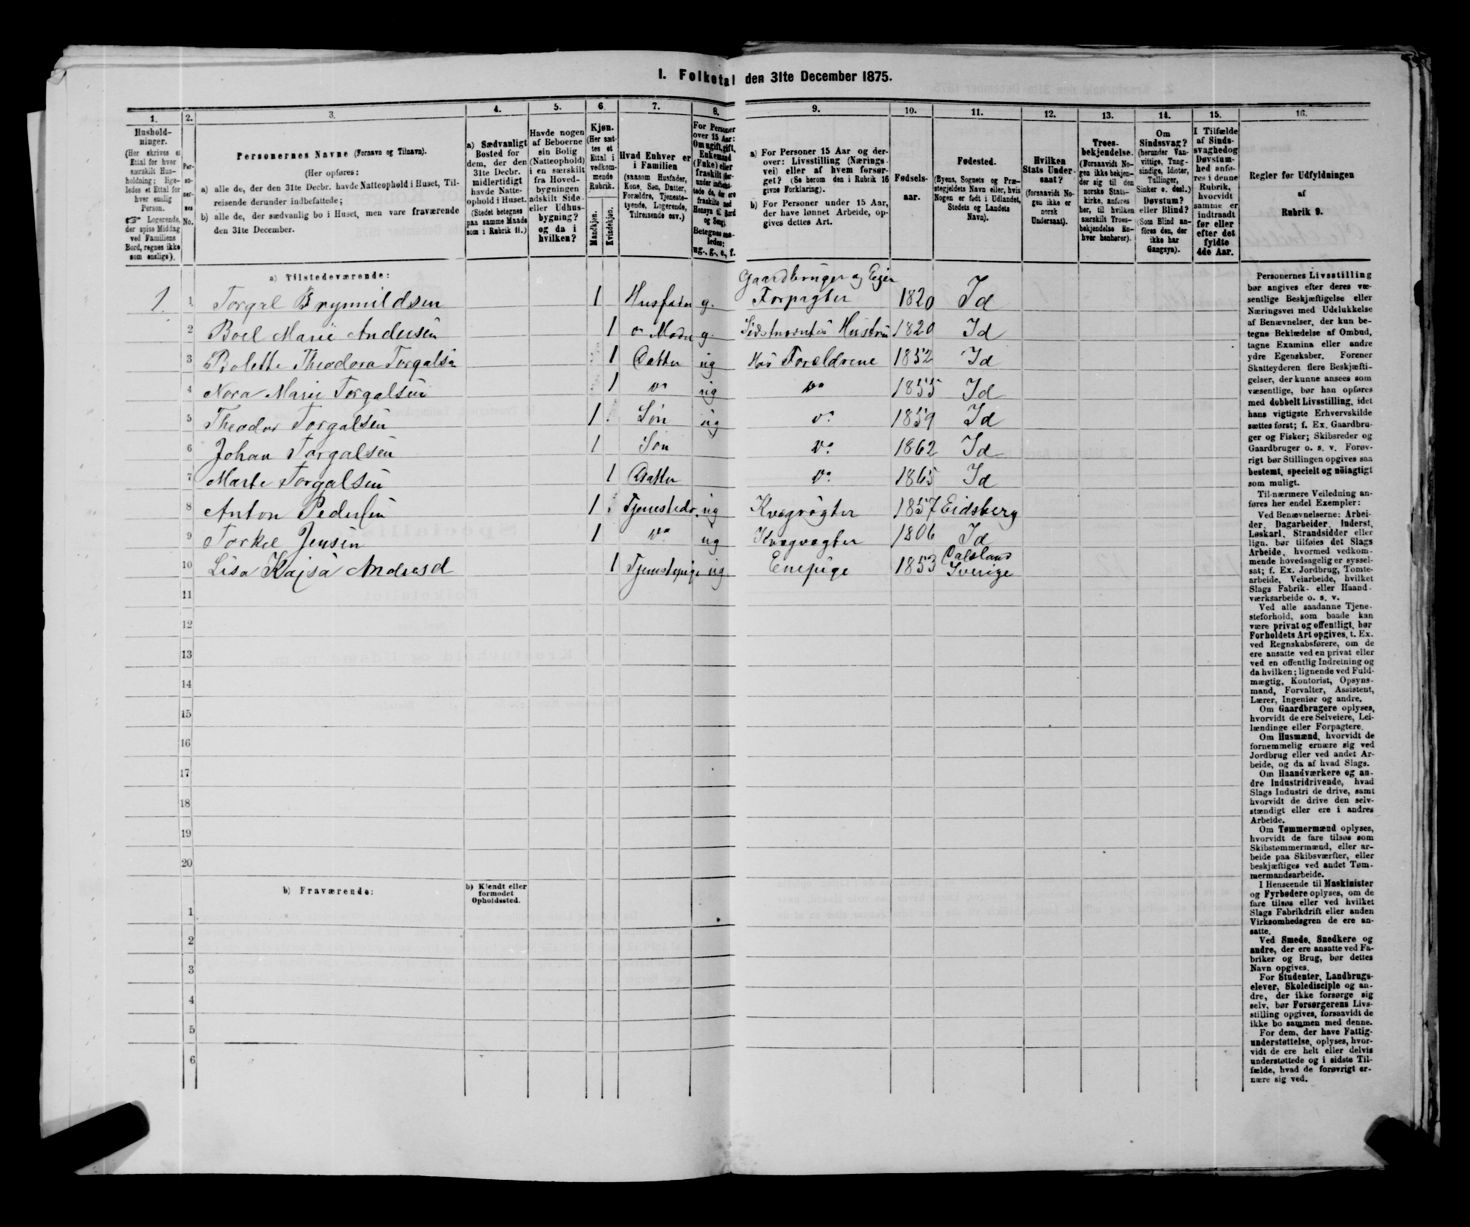 I. Folketal den 31te December 1875.
1.
2.
3.
4.
5.
6.
7.
8.
9.
10.
11.
12.
13.
14.
15.
16.
Hushold-
ninger.
(Her skrives et
Ettal for hver
særskilt Hus-
holdning; lige-
ledes et Ettal for
hver enslig
Person.
☞ Logerende,
der spise Middag
ved Familiens
Bord, regnes ikke
som enslige).
Per-
soner-
nes
No.
Personernes Navne (Fornavn og Tilnavn).
(Her opføres:
a) alle de, der den 31te Decbr. havde Natteophold i Huset, Til-
reisende derunder indbefattede;
b) alle de, der sædvanlig bo i Huset, men vare fraværende
den 31te December.
a) Sædvanligt
Bosted for
dem, der den
31te Decbr.
midlertidigt
havde Natte-
ophold i Huset.
(Stedet betegnes
paa samme Maade
som i Rubrik 11.)
Havde nogen
af Beboerne
sin Bolig
(Natteophold)
i en særskilt
fra Hoved-
bygningen
adskilt Side-
eller Udhus-
bygning?
og da i
hvilken?
Kjøn.
(Her sæt-
tes et
Ettal i
vedkom-
mende
Rubrik.
Mandkjøn.
Kvindekjøn.
Hvad Enhver er
i Familien
(saasom Husfader,
Kone, Søn, Datter,
Forældre, Tjeneste-
tyende, Logerende,
Tilreisende osv.)
For Personer
over 15 Aar:
Om ugift, gift,
Enkemand
(Enke) eller
fraskilt
Betegnes saa-
ledes:
ug., g., e., f.
a) For Personer 15 Aar og der-
over: Livsstilling (Nærings-
vei) eller af hvem forsør-
get? (Se herom den i Rubrik 16
givne Forklaring).
b) For Personer under 15 Aar,
der have lønnet Arbeide, op-
gives dettes Art.
Fødsels-
aar.
Fødested.
(Byens, Sognets og Præ-
stegjeldets Navn eller, hvis
Nogen er født i Udlandet,
Stedets og Landets
Navn).
Hvilken
Stats Under-
saat?
(forsaavidt No-
gen ikke er
norsk
Undersaat).
Troes-
bekjendelse.
(Forsaavidt No-
gen ikke bekjen-
der sig til den
norske Stats-
kirke, anføres
her, til hvilken
særskilt Troes-
bekjendelse En-
hver henhører).
Om
Sindssvag?
(herunder Van-
vittige, Tung-
sindige, Idioter,
Tullinger,
Sinker o. desl.)
Døvstum?
eller Blind?
(Som Blind an-
føres den, der
ikke har
Gangsyn).
I Tilfælde
af Sinds-
svaghed og
Døvstum-
hed anfø-
res i denne
Rubrik,
hvorvidt
samme er
indtraadt
før eller
efter det
fyldte
4de Aar.
Regler for Udfyldningen
af
Rubrik 9.
a) Tilstedeværende:
Gaardbruger og Eier
1. 1 Torgal Brynnildsen 1 Husfader g. Forpagter 1820 Id
2 Boel Marie Andersen 1 Moder g. Hustru 1820 Id
3 Bolette Theodora Torgalsen 1 Datter ug Hos Forældrene 1852 Id
4 Nora Marie Torgalsen 1 do ug do 1855 Id
5 Theodor Torgalsen 1 Søn ug do 1859 Id
6 Johan Torgalsen 1 Søn do 1862 Id
7 Marte Torgalsen 1 Datter do 1865 Id
8 Anton Pedersen 1 ug Kvægrøgter 1857 Eidsberg
9 Torkel Jensen 1 do ug Kvægvogter 1806 Id
10 Lisa Kajsa Andreasd 1 Tjenestepige ug Enepige 1853 Dalsland Sverige
11
12
13
14
15
16
17
18
19
20
b) Fraværende:
b) Kjendt eller
formodet
Opholdssted.
1
2
3
4
5
6
Personernes Livsstilling
bør angives efter deres væ-
sentlige Beskjæftigelse eller
Næringsvei med Udelukkelse
af Benævnelser, der kun be-
tegne Beklædelse af Ombud,
tagne Examina eller andre
ydre Egenskaber. Forener
Skatteyderen flere Beskjæfti-
gelser, der kunne ansees som
væsentlige, bør han opføres
med dobbelt Livsstilling, idet
hans vigtigste Erhvervskilde
sættes først; f. Ex. Gaardbru-
ger og Fisker; Skibsreder og
Gaardbruger o. s. v. Forøv-
rigt bør Stillingen opgives saa
bestemt, specielt og nøiagtigt
som muligt.
Til nærmere Veiledning an-
føres her endel Exempler:
Ved Benævnelserne: Arbei-
der, Dagarbeider, Inderst,
Løskarl, Strandsidder eller
lign. bør tilføies det Slags
Arbeide, hvormed vedkom-
mende hovedsagelig er syssel-
sat; f. Ex. Jordbrug, Tomte-
arbeide, Veiarbeide, hvilket
Slags Fabrik- eller Haand-
værksarbeide o. s. v.
Ved alle saadanne Tjene-
steforhold, som baade kan
være privat og offentligt, bør
Forholdets Art opgives, t. Ex.
ved Regnskabsførere, om de
ere ansatte ved en privat eller
ved en offentlig Indretning og
da hvilken; lignende ved Fuld-
mægtig, Kontorist, Opsyns-
mand, Forvalter, Assistent,
Lærer, Ingeniør og andre.
Om Gaardbrugere oplyses,
hvorvidt de ere Selveiere, Lei-
lændinge eller Forpagtere.
Om Husmænd, hvorvidt de
fornemmelig ernære sig ved
Jordbrug eller ved andet Ar-
beide, og da af hvad Slags.
Om Haandværkere og an-
dre Industridrivende, hvad
Slags Industri de drive, samt
hvorvidt de drive den selv-
stændigt eller ere i andres
Arbeide.
Om Tømmermænd oplyses,
hvorvidt de fare tilsøs som
Skibstømmermænd, eller ar-
beide paa Skibsværfter, eller
beskjæftiges ved andet Tøm-
mermandsarbeide.
I Henseende til Maskinister
og Fyrbødere oplyses, om de
fare tilsøs eller ved hvilket
Slags Fabrikdrift eller anden
Virksomhedsgren de ere an-
satte.
Ved Smede, Snedkere og
andre, der ere ansatte ved Fa-
briker og Brug, bør dettes
Navn opgives.
For Studenter, Landbrugs-
elever, Skoledisciple og an-
dre, der ikke forsørge sig
selv, bør Forsørgerens Livs-
stilling opgives, forsaavidt de
ikke bo sammen med denne.
For dem, der have Fattig-
understøttelse, oplyses, hvor-
vidt de ere helt eller delvis
understøttede og i sidste Til-
fælde, hvad de forøvrigt er-
nære sig ved.